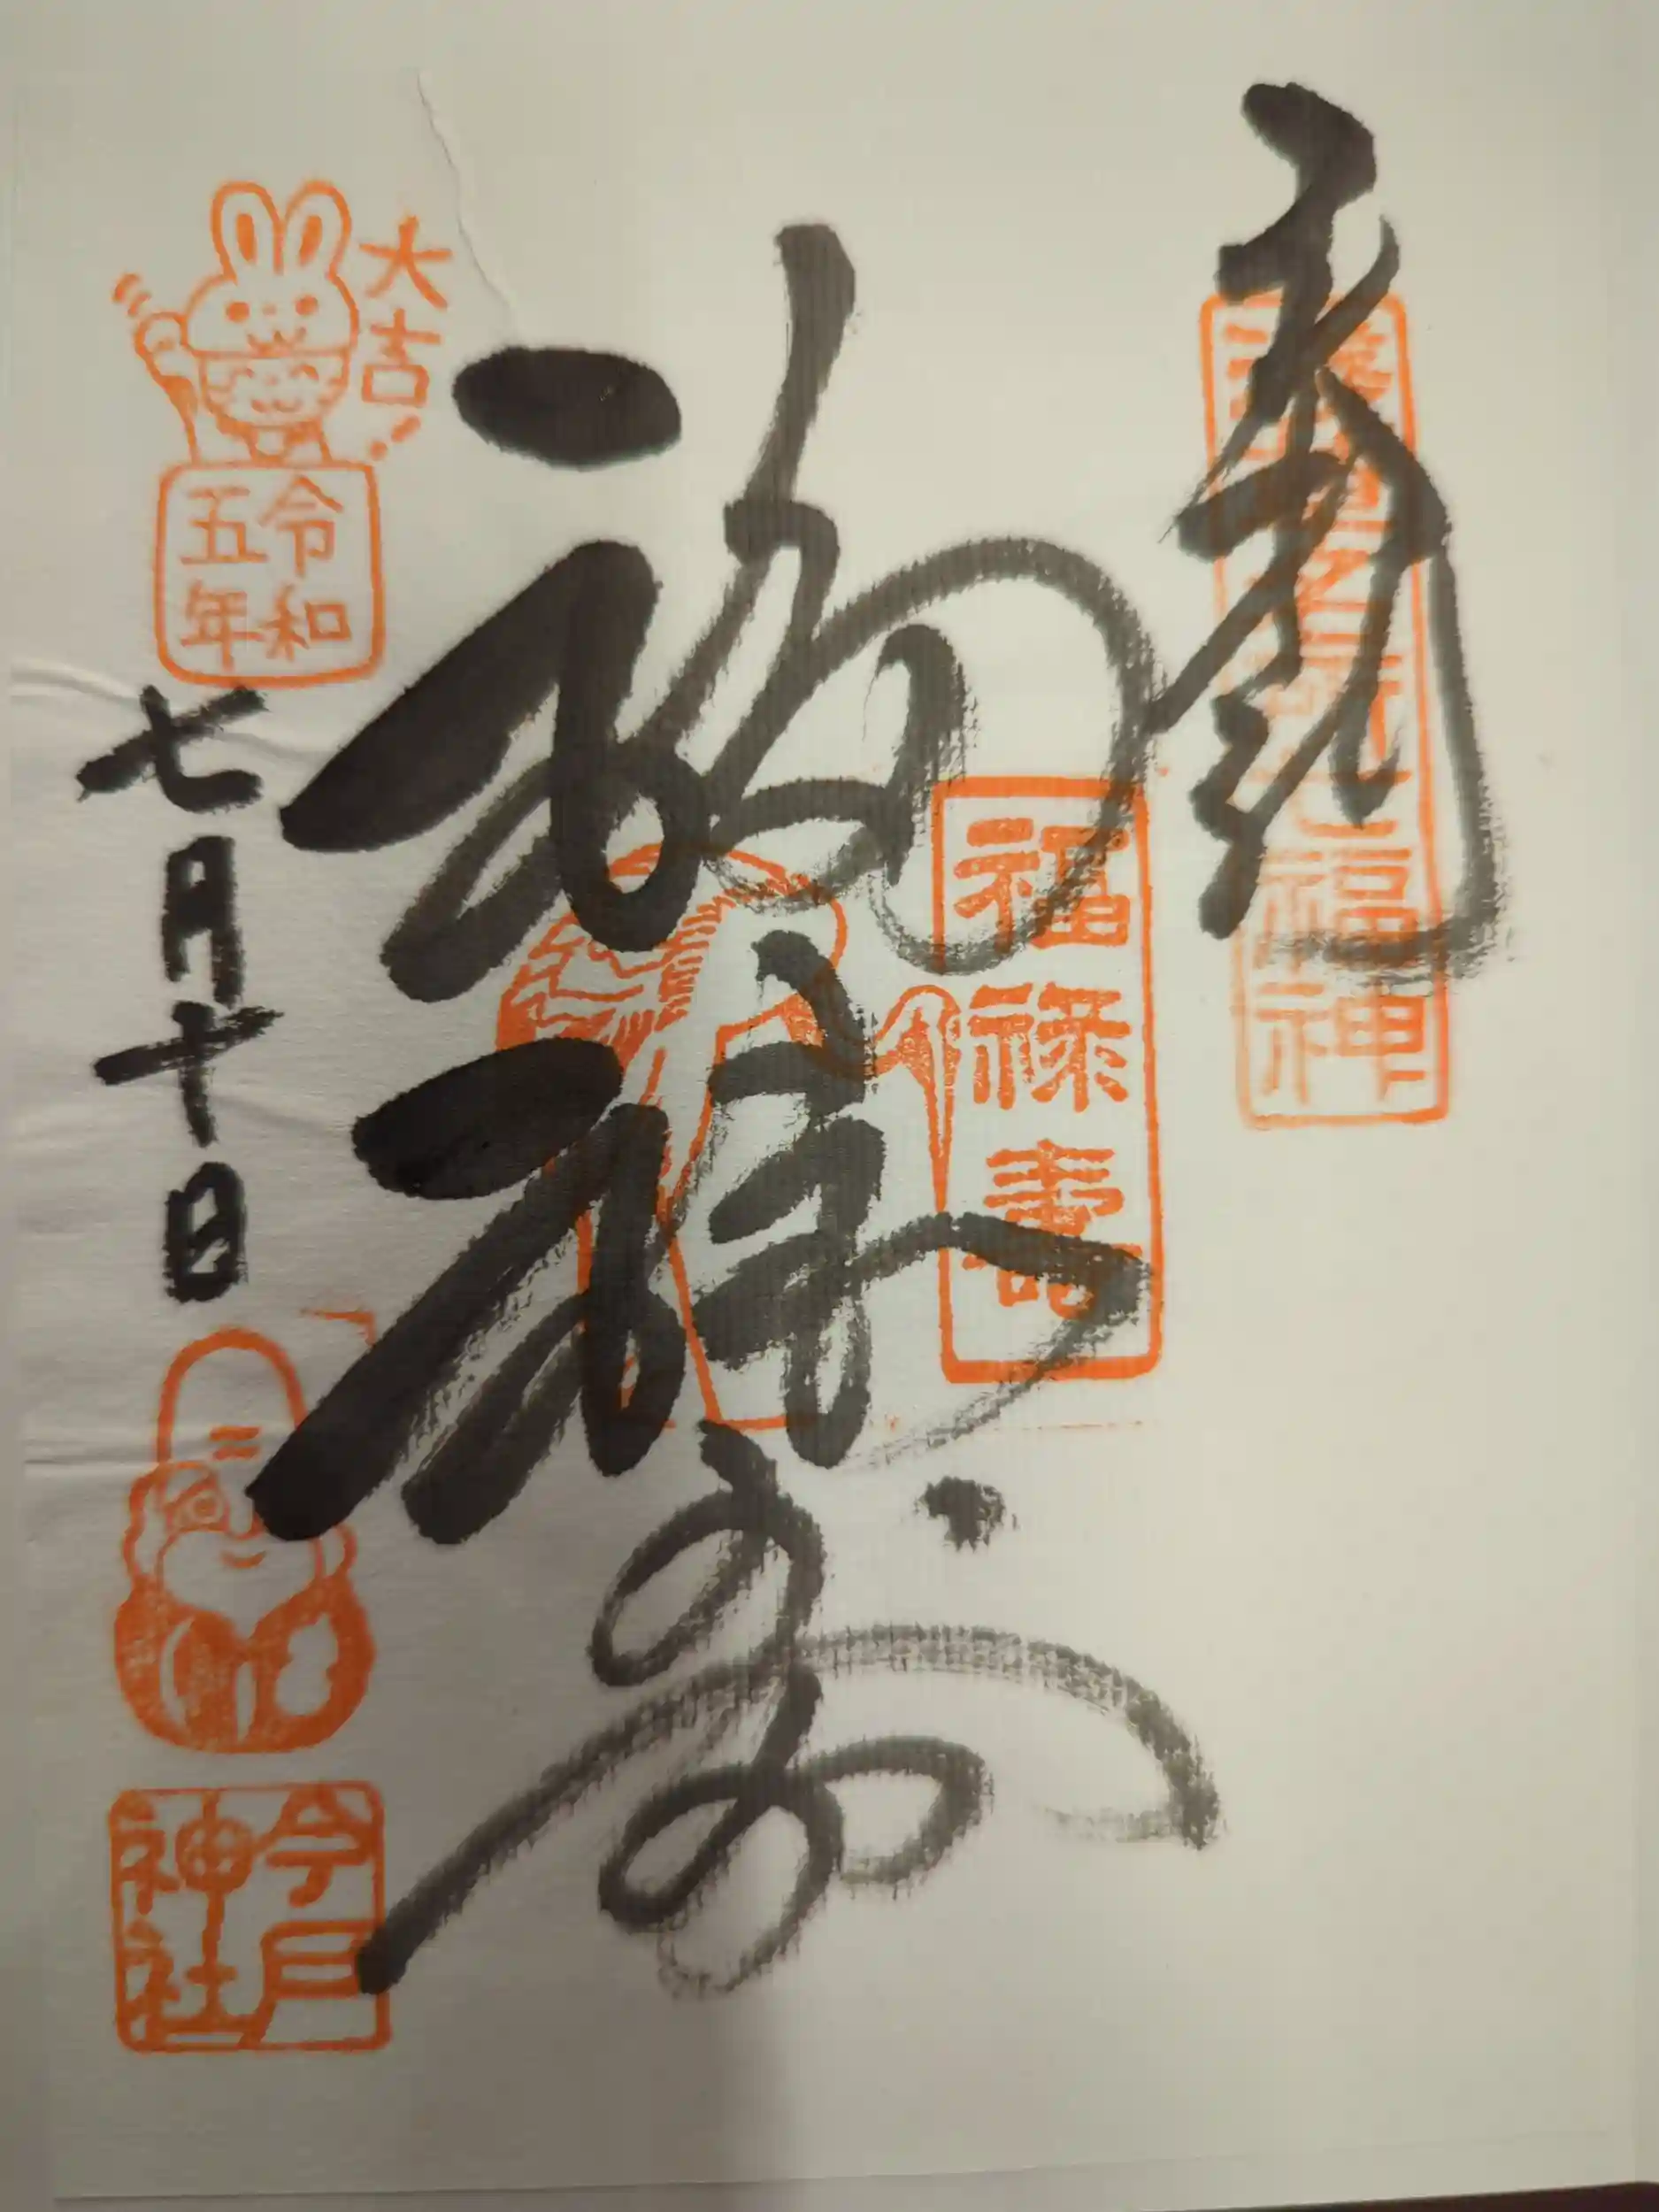 奉拝
浅草名所七福神
福禄寿
福禄寿
大吉
令和
五年
七月十日
今戸
神社